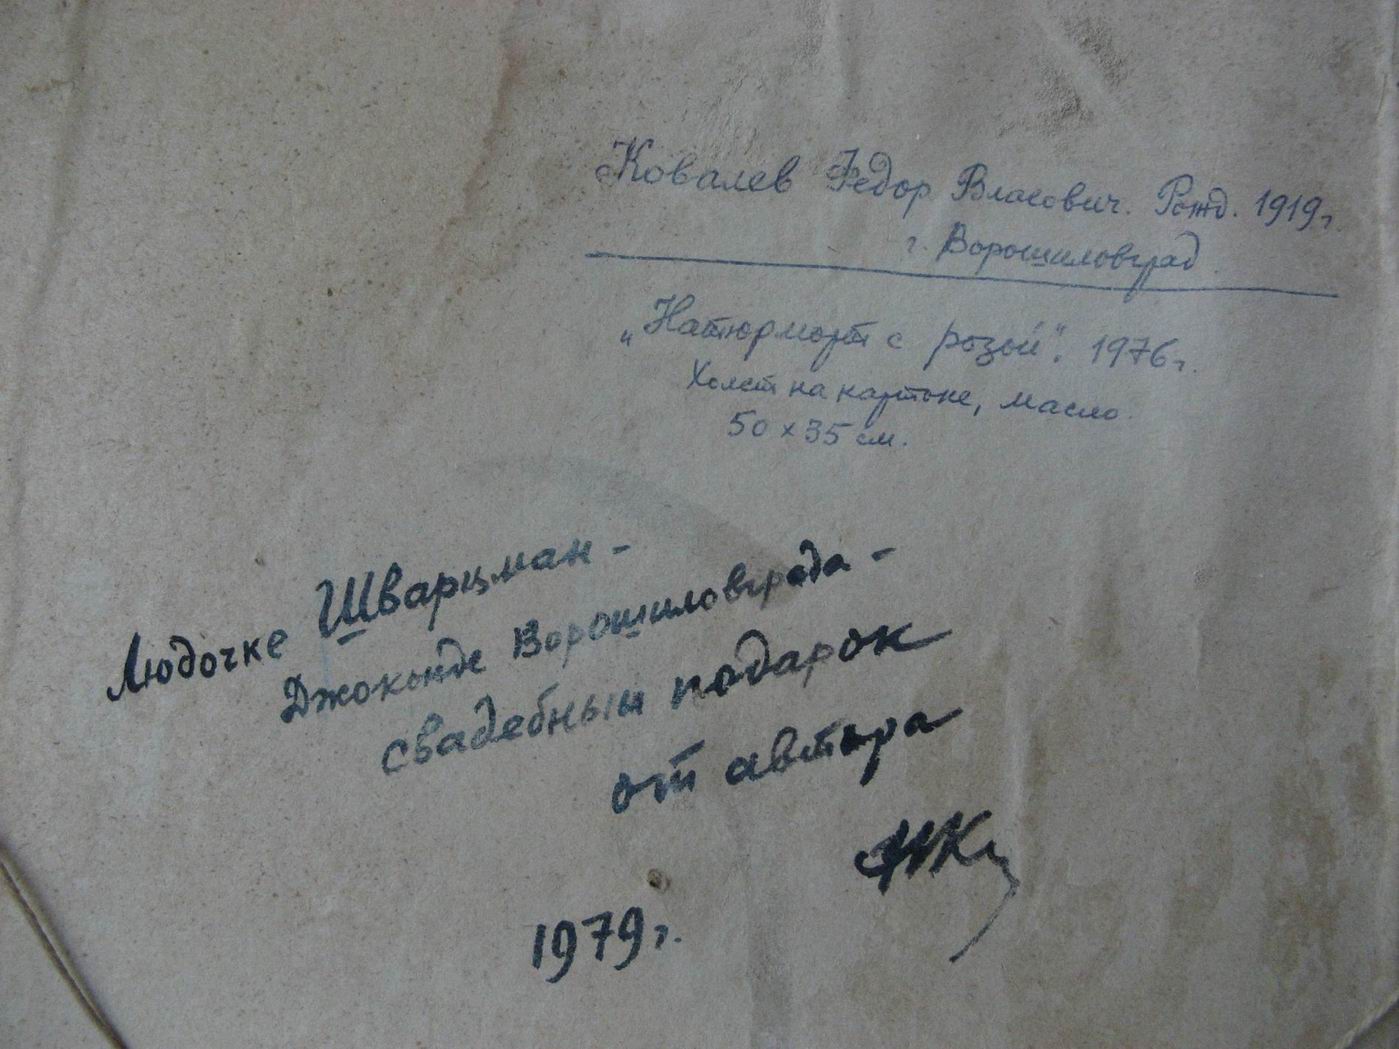 Ковалев Федор Власович. Рожд. 1919г.
г. Ворошиловград.
„Натюрморт с розой". 1976г.
Холст на картоне, масло.
50 × 35 см.
Людочке Шварцман -
Джоконде Ворошиловграда -
свадебный подарок
от автора
1979г.